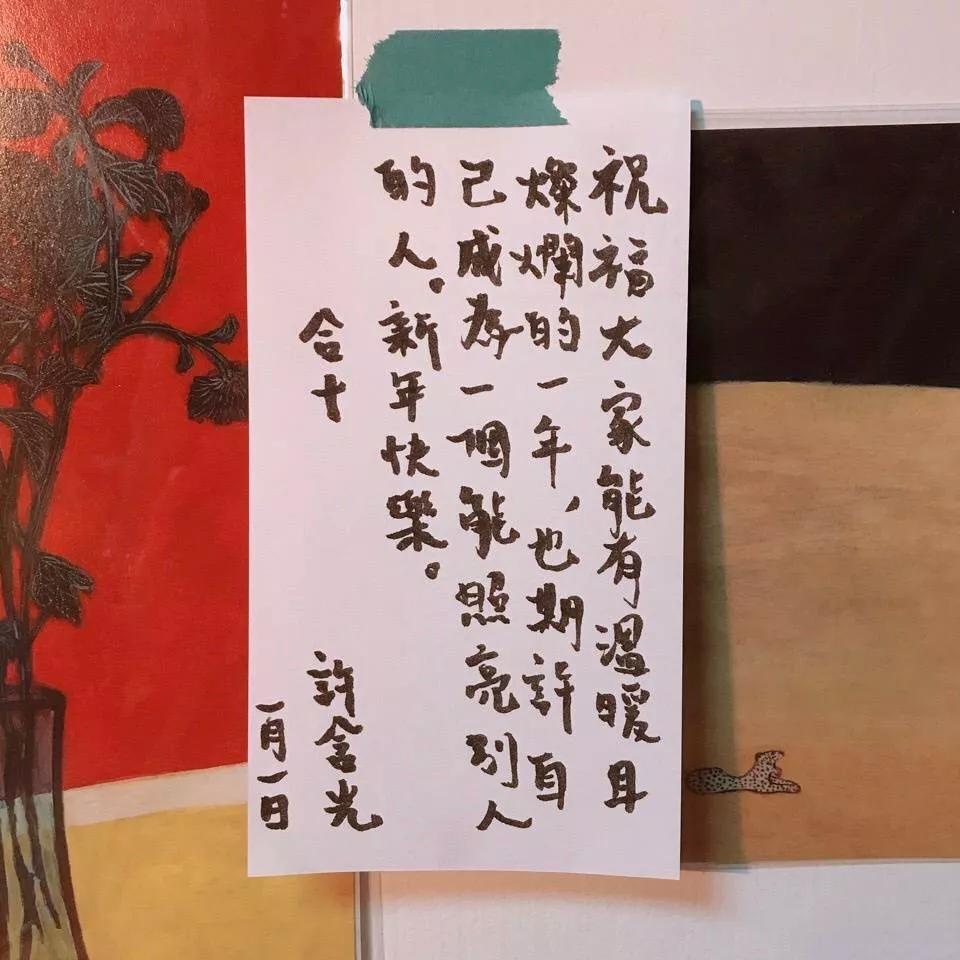 祝福大家能有溫暖且
燦爛的一年，也期許自
己成為一個能照亮別人
的人。新年快樂。
合十
許含光
一月一日